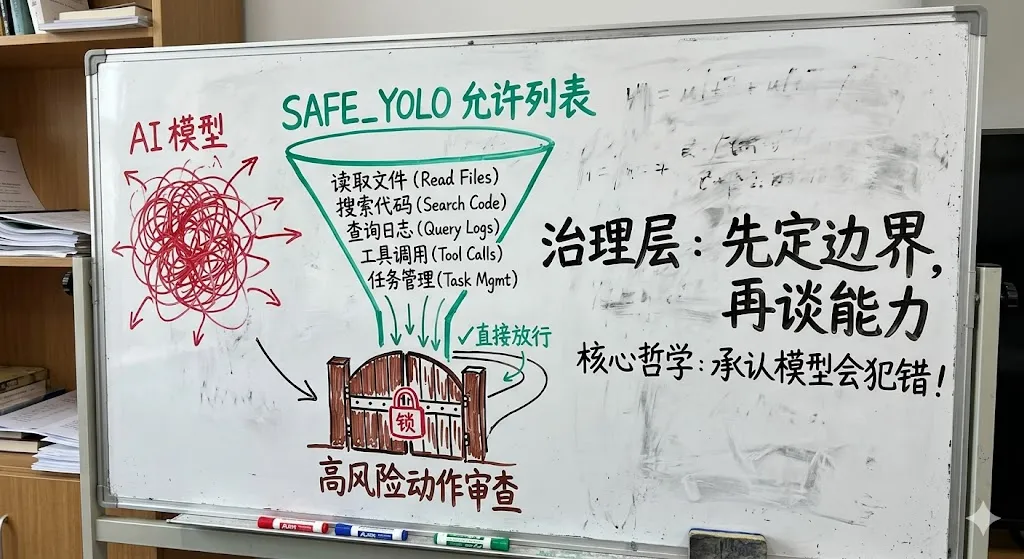 AI 模型
SAFE_YOLO 允许列表
读取文件 (Read Files)
搜索代码 (Search Code)
查询日志 (Query Logs)
工具调用 (Tool Calls)
任务管理 (Task Mgmt)
✓直接放行
锁
高风险动作审查
治理层：先定边界，
再谈能力
核心哲学：承认模型会犯错！